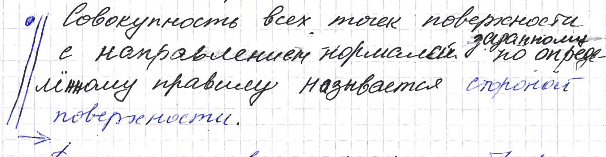 Совокупность всех точек поверхности
с направлением нормалей заданному по опреде-
лённому правилу называется стороной
поверхности.